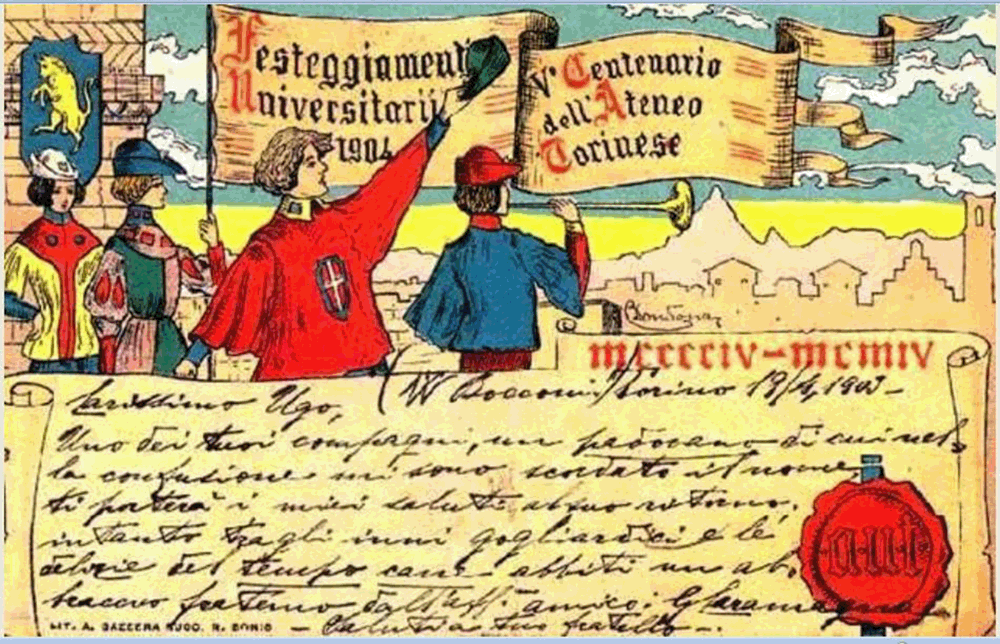 Festeggiamenti
Universitarii
1904
V° Centenario
dell'Ateneo
Torinese
mccccciv-mcmiv
Carissimo Ugo, (W Bocconi) Torino 13/4, 1903 -
Uno dei tuoi compagni, un padovano di cui nel-
la confusione mi sono scordato il nome
ti porterà i miei saluti al suo ritorno.
intanto tra gli inni gogliardici e le
delizie del tempo cane abbiti un ab-
braccio fraterno dall'aff. amico: G
- Saluti a tuo fratello -
a.u.t
LIT. A. GAZZERA SUCC. R.